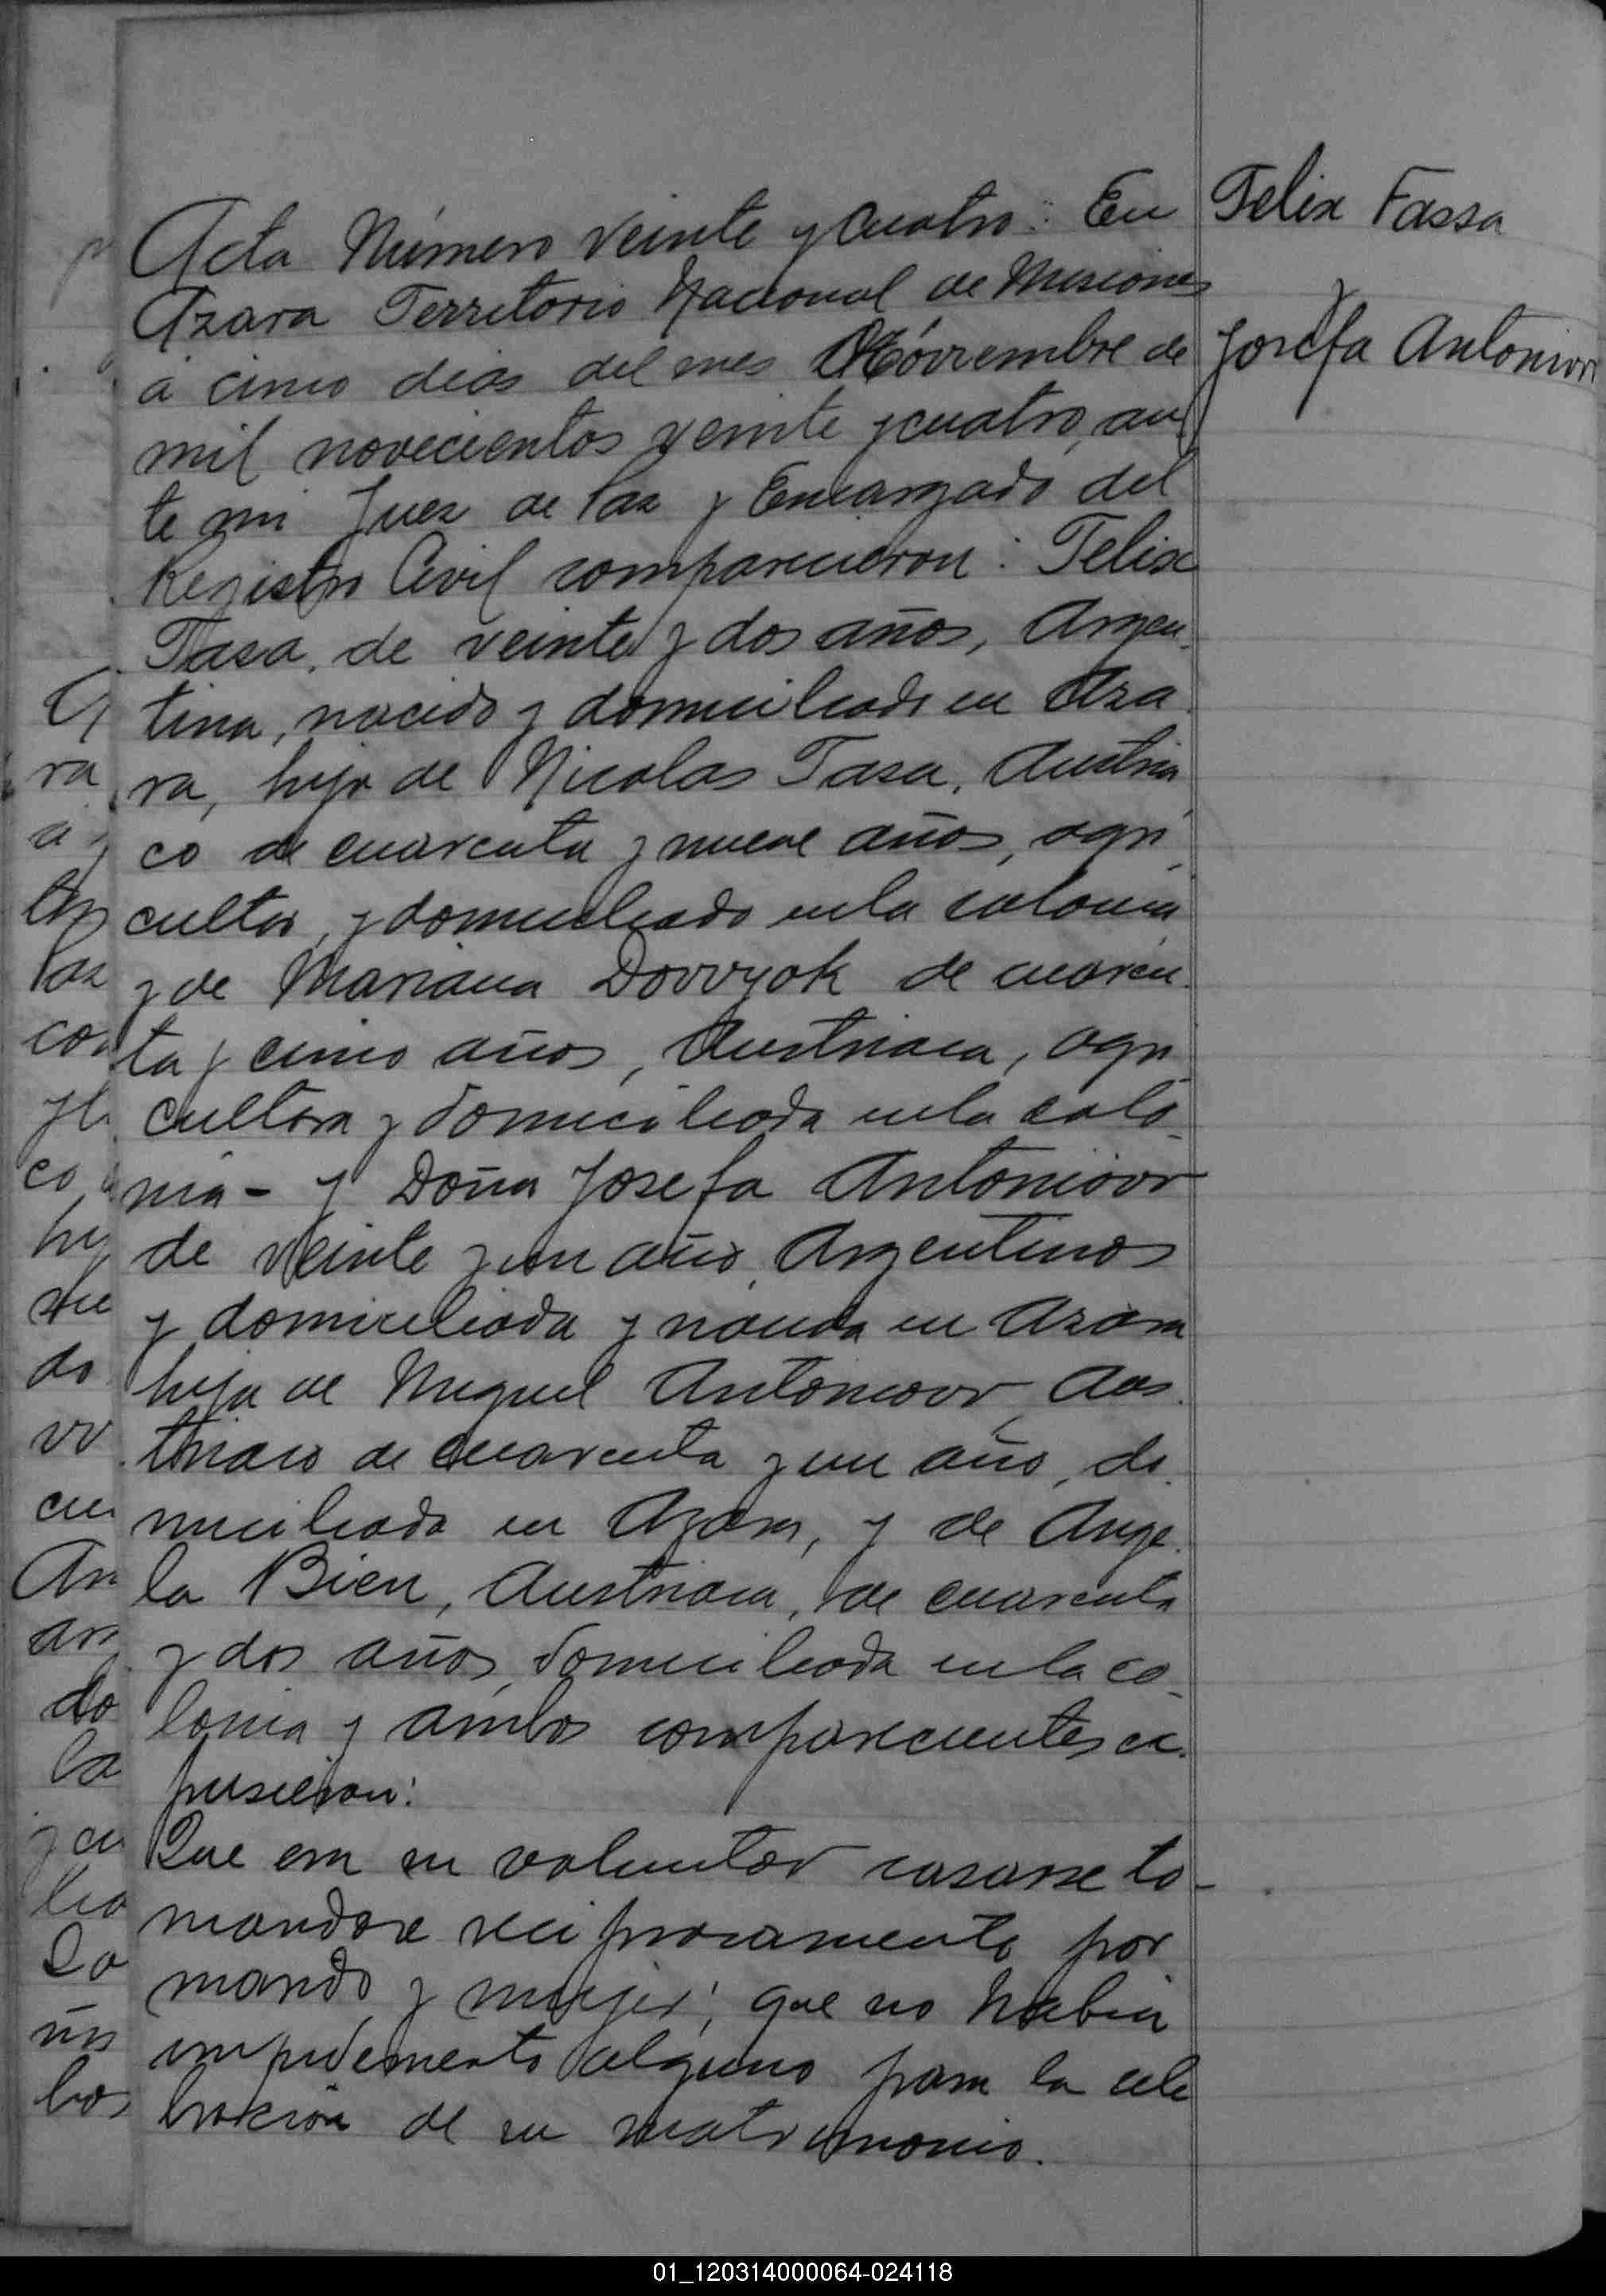 Acta Número Veinte y Cuatro: En
Azara Territorio Nacional de Misiones
á cinco dias del mes Nóviembre de
mil novecientos veinte y cuatro, an
te mi Juez de Paz y Encargado del
Registro Civil comparecieron: Felix
Tasa, de veinte y dos años, Argen
tina, nacido y domiciliado en Aza
ra, hijo de Nicolas Tasa, Austria
co de cuarenta y nueve años, agri
cultor, y domiciliado en la colonia
y de Mariana Dovvyok de cuaren
ta y cinco años, Austriaca, agri
cultora y domiciliada en la colo
nia - y Doña Josefa Antoniovr
de veinte y un año, Argentina
y domiciliada y nacida en Azara
hija de Miguel Antoniovr, Aus
triaco de cuarenta y un año, do
miciliado en Azara, y de Ange
la Bien, Austriaca, de cuarenta
y dos años, domiciliada en la co
lonia y ambos comparecientes ex
pusieron:
Que era su voluntad casarse to-
mandose reciprocamente por
marido y mujer; que no habia
impedemento alguno para la cele
bración de su matrimonio.
Felix Fassa
y
Josefa Antoniov
ra
a
las
Paz
co
hi
do
vv
cu
An
ar
do
la
y cu
lia
Do
ñs
bos
01_120314000064-024118